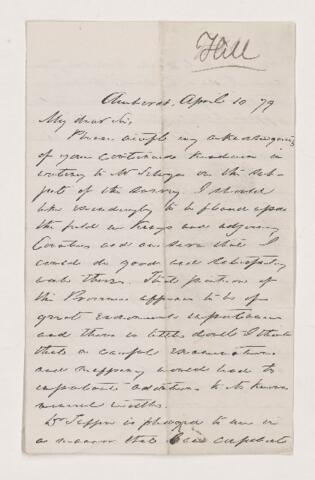 Hill
Amherst, April 10 79
My dear Sir,
Please accept my acknowledgements
of your continued kindness in
writing to Mr Selwyn on the sub-
jects of the survey. I should
like exceedingly to be placed upon
the field in Kings and adjoining
Counties and am sure that I
could do good and satisfactory
work there. That portion of
the Province appears to be of
great economic importance
and there is little doubt I think
that a careful examination
and mapping would lead to
important additions to its known
mineral wealth.
Dr is pleased to use me
in a manner that